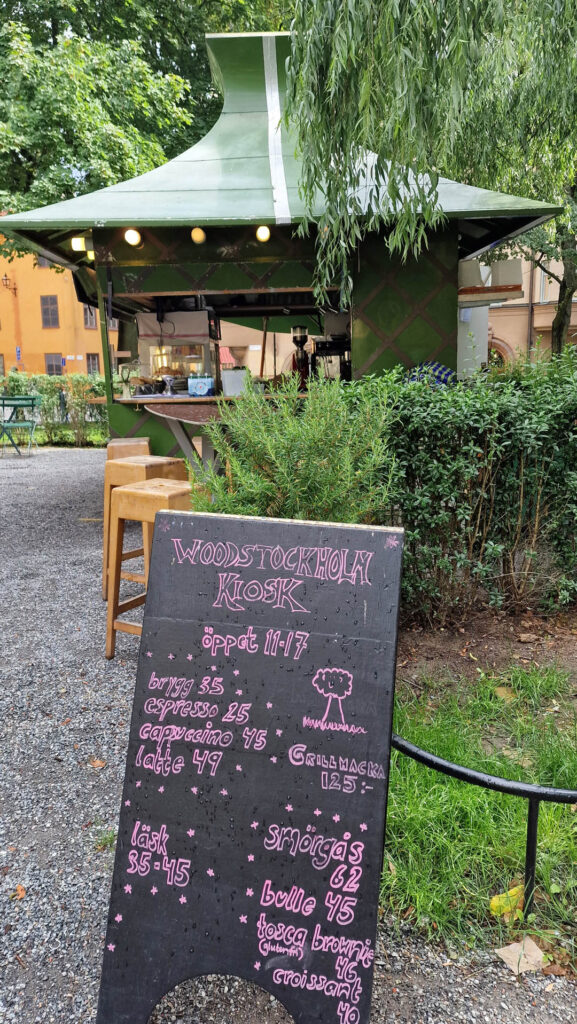 WOODSTOCKHOLM
KIOSK
öppet 11-17
brygg 35
espresso 25
capuccino 45
latte 49
GRILLMACKA
125:-
läsk
35-45
smörgås
62
bulle 45
tosca brownie
(glutenfri) 46
croissant
40